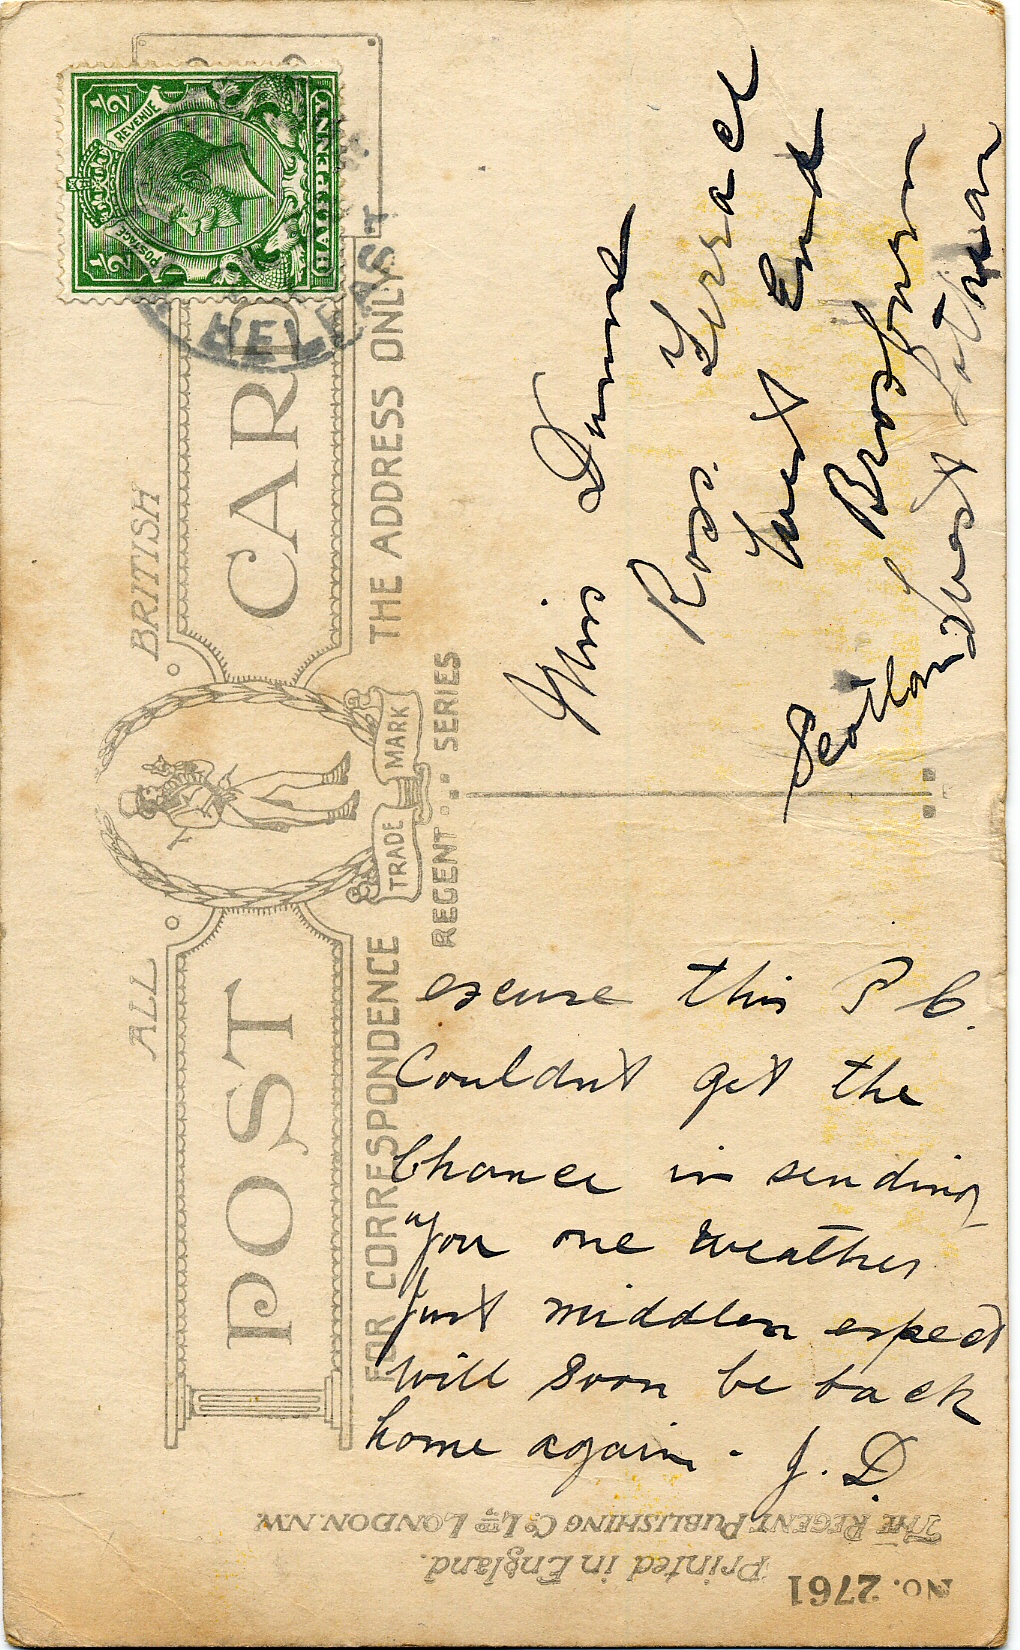 ALL BRITISH
POST CARD
TRADE MARK
FOR CORRESPONDENCE
THE ADDRESS ONLY
REGENT SERIES
POSTAGE REVENUE
½ ½
HALFPENNY
BELFAST
excuse this P C.
Couldnt get the
Chance in sending
you one weather
just middlen expect
will soon be back
home again - J. D.
Miss Dunn
Ross. Terrace
West End
Broxburn
West Lothian
Scotland
THE REGENT PUBLISHING Co LTD LONDON. N.W.
Printed in England.
No. 2761